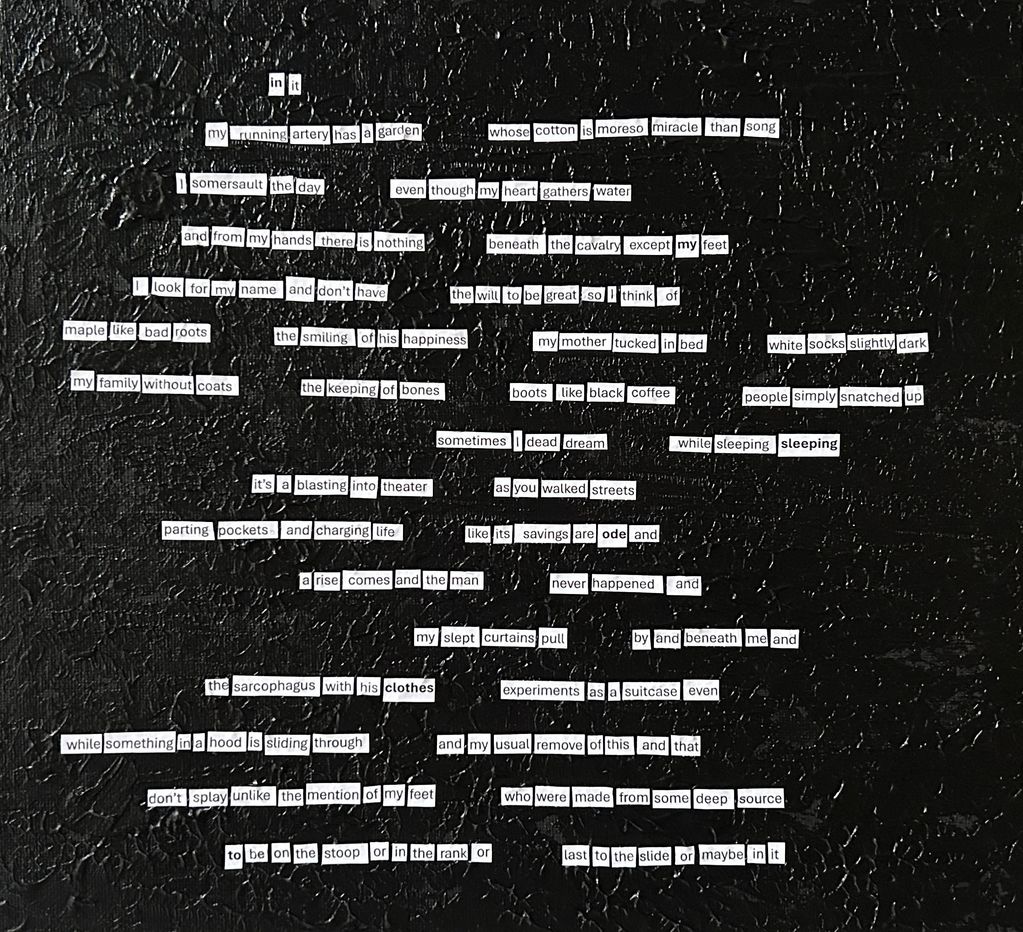 in it
my running artery has a garden whose cotton is moreso miracle than song
I somersault the day even though my heart gathers water
and from my hands there is nothing beneath the cavalry except my feet
I look for my name and don't have the will to be great so I think of
maple like bad roots the smiling of his happiness my mother tucked in bed white socks slightly dark
my family without coats the keeping of bones boots like black coffee people simply snatched up
sometimes I dead dream while sleeping sleeping
it's a blasting into theater as you walked streets
parting pockets and charging life like its savings are ode and
a rise comes and the man never happened and
my slept curtains pull by and beneath me and
the sarcophagus with his clothes experiments as a suitcase even
while something in a hood is sliding through and my usual remove of this and that
don't splay unlike the mention of my feet who were made from some deep source
to be on the stoop or in the rank or last to the slide or maybe in it